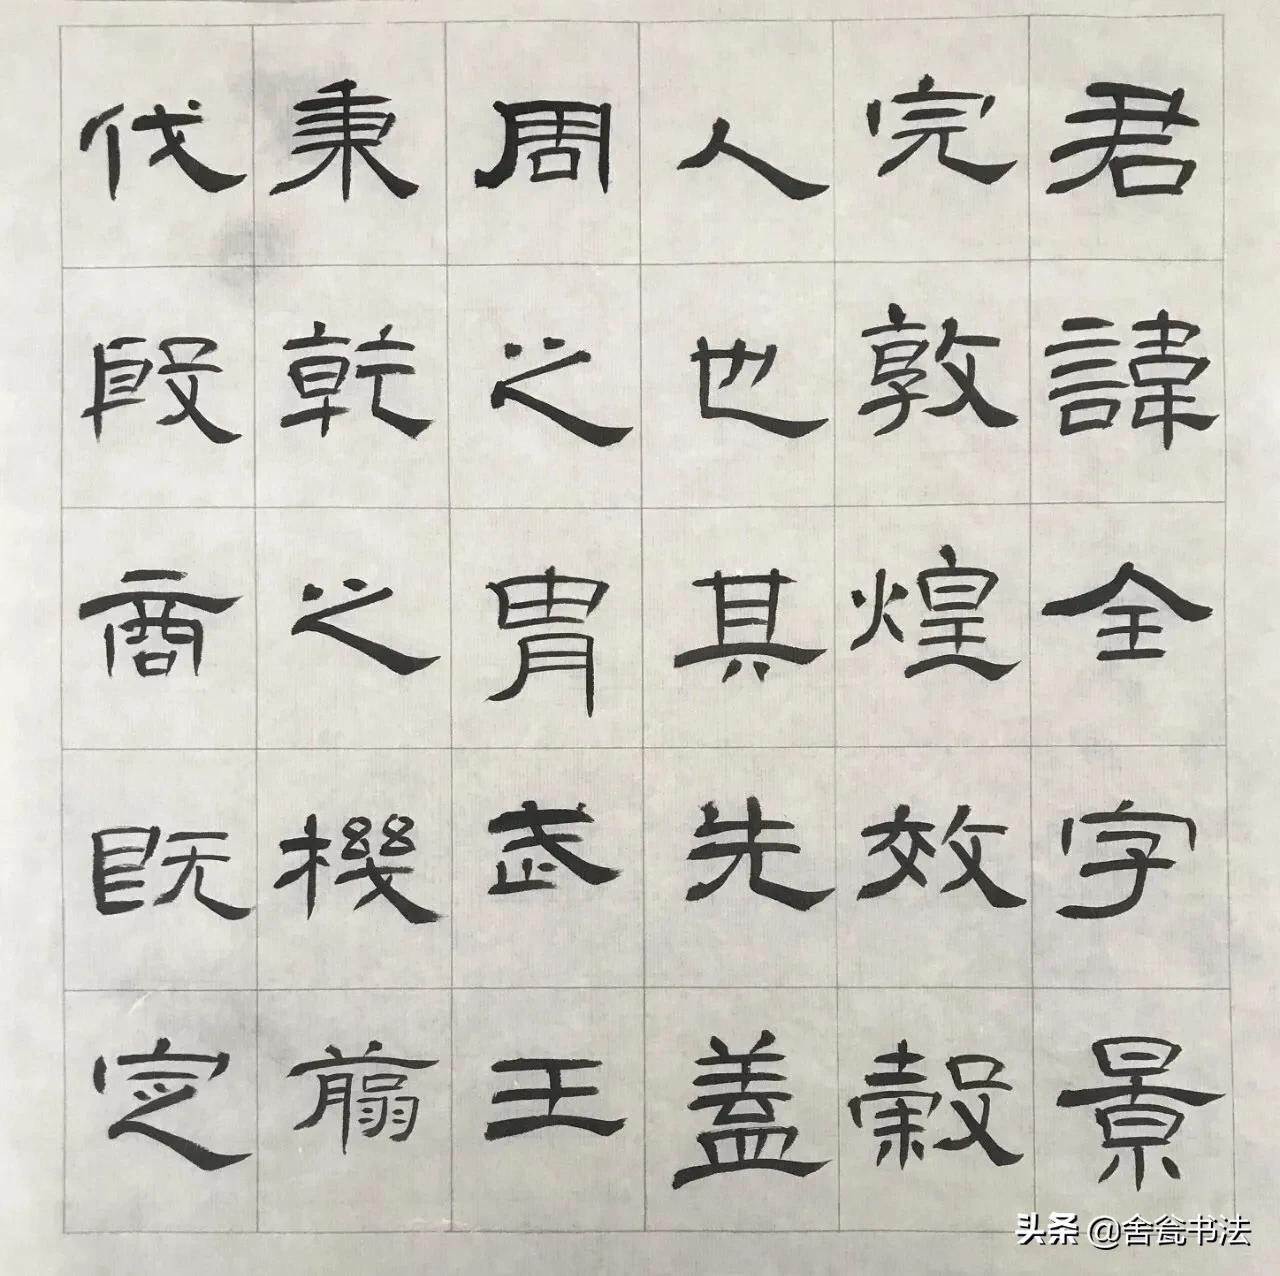 君諱全字景
完敦煌效穀
人也其先蓋
周之胄武王
秉乾之機翦
伐殷商既定
头条 @舍瓮书法